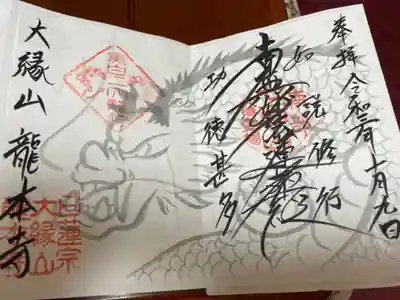 奉拝 令和 月九日
如説修行
南無妙法蓮華経
功徳甚多
大縁山 龍本寺
日蓮宗
大縁山